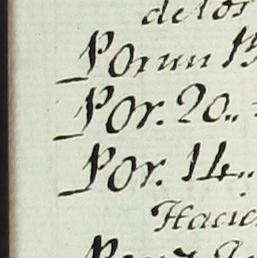 de los
Por un 15
Por. 20..
Por. 14..
Hacie